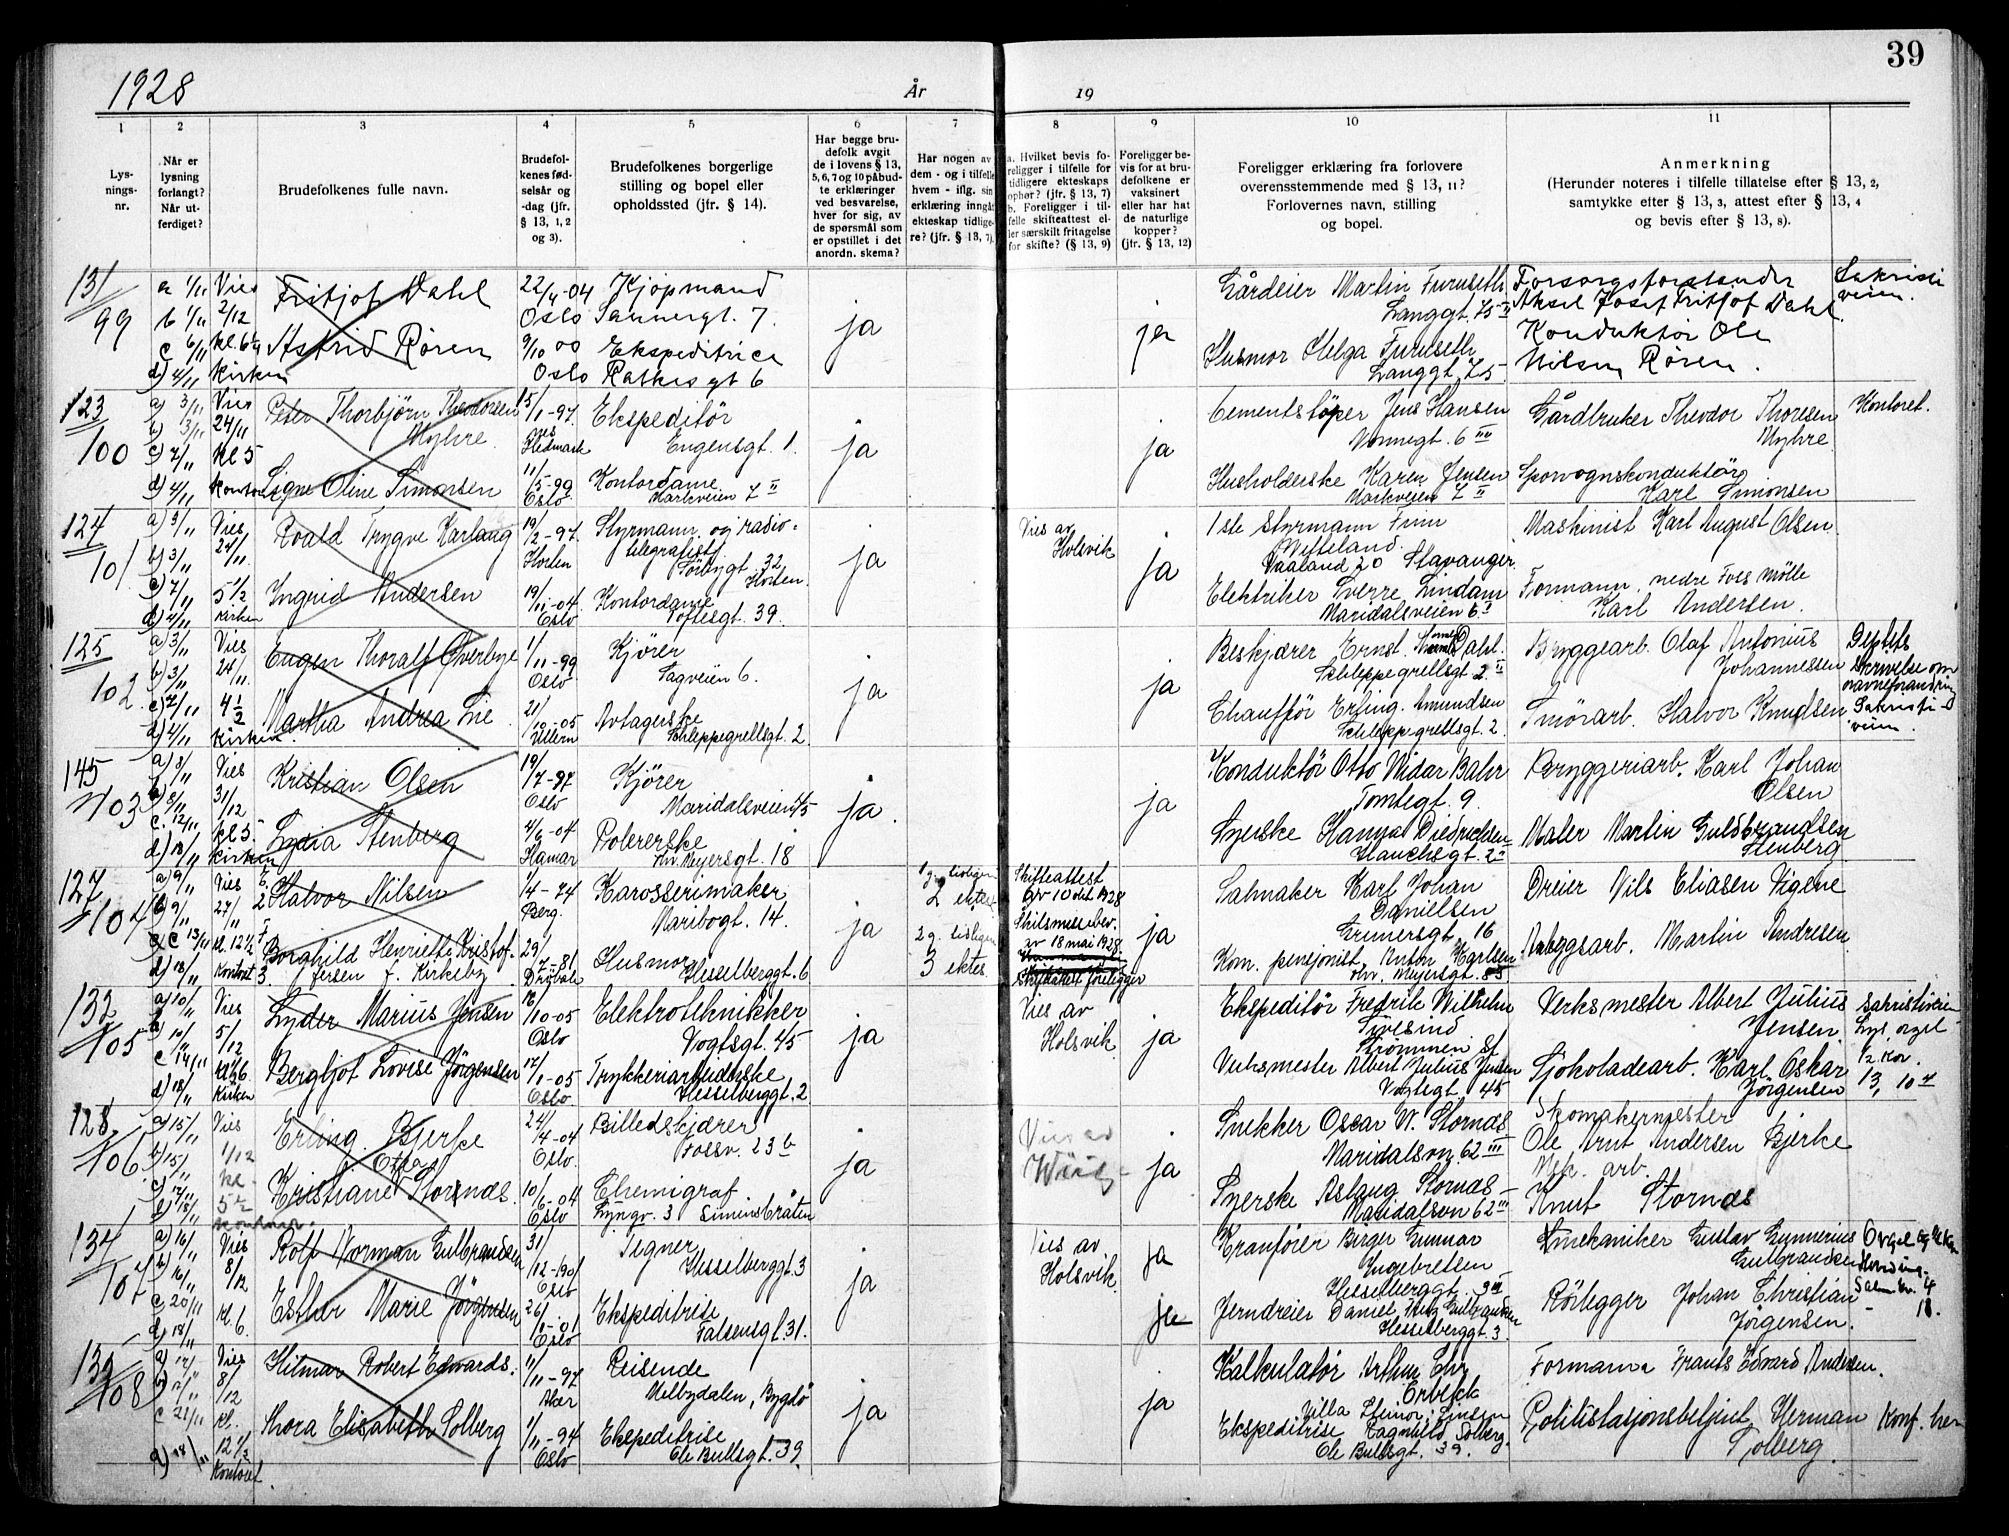 39
1928
År
19
1
2
3
4
5
6
7
8
9
10
11
Lys-
nings-
nr.
Når er
lysning
forlangt?
Når ut-
ferdiget?
Brudefolkenes fulle navn.
Brudefol-
kenes fød-
selsår og
-dag (jfr.
§ 13, 1, 2
og 3).
Brudefolkenes borgerlige
stilling og bopel eller
opholdssted (jfr. § 14).
Har begge bru-
defolk avgit
de i lovens § 13,
5, 6, 7 og 10 påbud-
te erklæringer
ved besvarelse,
hver for sig, av
de spørsmål som
er opstillet i det
anordn. skema?
Har nogen av
dem - og i tilfelle
hvem - iflg. sin
erklæring inngåt
ekteskap tidlige-
re? (jfr. § 13, 7).
a. Hvilket bevis fo-
religger i tilfelle for
tidligere ekteskaps
ophør? (jfr. § 13, 7)
b. Foreligger i til-
felle skifteattest el-
ler særskilt fritagelse
for skifte? (§ 13, 9)
Foreligger be-
vis for at bru-
defolkene er
vaksinert
eller har hat
de naturlige
kopper?
(jfr. § 13, 12)
Foreligger erklæring fra forlovere
overensstemmende med § 13, 11?
Forlovernes navn, stilling
og bopel.
Anmerkning
(Herunder noteres i tilfelle tillatelse efter § 13, 2,
samtykke efter § 13, 3, attest efter § 13, 4
og bevis efter § 13, 8).
131
99
a 1/11
b 1/11
c 6/11
d) 4/11
Vies
2/12
kl. 6 1/4
Kirken
Fritjof Dahl
Astrid Røren
22/4-04
Oslo
9/10 00
Oslo
Kjøpmand
Sannergt. 7.
Ekspeditrice
Ratkes gt 6
ja
ja
Gårdeier Martin Furuseth
Langgt. 75 II
Husmor Helga Furuseth
Langgt 75
Forsorgsforstander
Aksel Josef Fritjof Dahl.
Konduktør Ole
Nilsen Røren.
Sakristi
veien.
123
100
a) 3/11
b) 3/11
c) 7/11
d) 4/11
Vies
24/11
kl 5
Kontoret
Peter Thorbjörn Theodorsen
Myhre.
Signe Oline Simonsen
15/1-97.
Hedmark
11/5-99
Oslo
Ekspeditör
Eugensgt. 1.
Kontordame
Markveien 7 II
ja
ja
Cementstöper Jens Hansen
Vonnegt. 6 III
Husholderske Karen Jensen
Markveien 7 II
Gårdbruker Theodor Thoresen
Myhre
Sporvognskonduktör
Karl Simonsen
Kontoret.
124
101
a) 3/11
b) 3/11
c) 7/11
d) 4/11
Vies
24/11
5 1/2
Kirken
Roald Trygve Karlang
Ingrid Andersen
19/2-97.
Horten
19/11-04
Oslo
Styrmann og radio-
telegrafist
Sörbygt. 32
Horten.
Kontordame
Toftesgt. 39.
ja
Vies av
Holsvik
ja
1ste Styrmann Finn
Vaaland 20 Stavanger
Elektriker Sverre Lindam
Maridalsveien 6 I
Maskinist Karl August Olsen
Formann, nedre Foss Mölle
Karl Andersen.
125
102.
a) 3/11
b) 3/11
c) 7/11
d) 4/11
Vies
24/11.
4 1/2
Kirken.
Eugen Thoralf Øverbye
Martha Andrea Lie
1/11-99
Oslo
21/10-05
Ullern
Kjörer
Sagveien 6.
Avtagerske
Schleppegrellsgt. 2.
ja
ja
Beskjærer Ernst Dahl.
Schleppegrellsgt 2 II
Chaufför Erling Amundsen
Schleppegrellsgt. 2.
Bryggearb. Olaf Antonius
Johannessen
Smörarb. Halvor Knudsen
Deptets
skrivelse om
navneforandring
Sakristi-
veien.
145
103
a) 8/11
b) 8/11
c. 12/11
d) 18/11
Vies
31/12
kl 5
Kirken
Kristian Olsen
Lydia Stenberg
19/7-97
Oslo
4/6-04
Hamar
Kjörer
Maridalsveien 45
Polererske
Thv. Meyersgt. 18
ja.
ja
Konduktör Otto Vidar Bahr
Tomtegt. 9.
Syerske Hanna Diedrichsen
Hauchsgt. 2 II
Bryggeriarb. Karl Johan
Olsen
Maler Martin Guldbrandsen
Stenberg
127
104
a) 9/11
b) 9/11
c 13/11
d) 18/11
Vies
27/11
kl. 12 1/2
Kontoret
E.
2
F
3.
Halvor Nilsen
Borghild Henriette Kristof-
fersen f. Kirkeby
1/4-74
Berg.
29/7-81
Dröbak
Karosserimaker
Maribogt. 14.
Husmor
Hesselberggt. 6
ja
1 g. tidligere
2 ektes.
2 g. tidligere
3 ektes
Skifteattest
av 10 okt 1928
Skilsmissebev.
av 18 mai 1928
Skifteattest foreligger
ja
Salmaker Karl Johan
Danielsen
Grünersgt. 16
Kom. pensjonist Anton Karlsen
Thv. Meyersgt. 83
Dreier Nils Eliasen Vigene
Anleggsarb. Martin Andresen
132
105
a) 10/11
b) 10/11
c 14/11
d) 18/11
Vies
5/12
kl 6
Kirken
Lyder Marius Jensen
Bergljot Lovise Jörgensen
16/10-05
Oslo
17/1-05
Oslo.
Elektrotekniker
Vogtsgt. 45
Trykkeriarbeiderske
Hesselberggt. 2
ja
Vies av
Holsvik
ja
Ekspeditör Fredrik Wilhelm
Tvesind
Strömmen St
Verksmester Albert Julius Jensen
Vogtsgt 45
Verksmester Albert Julius
Jensen.
Sjokoladearb. Karl Oskar
Jörgensen
Sakristiveien
Lys, orgel
12 kor.
13, 10 4
128
106
a) 15/11
b) 15/11
c) 17/11
d) 18/11
Vies
1/12
kl.
5 1/2
Kontoret.
Erling Bjerke
Kristiane Stornæs.
24/4-04
Oslo.
10/6-04
Oslo
Billedskjærer
Fossv. 23 b
Chemigraf
Lyngv. 3 Simensbråten
ja
Vies av
ja
Snekker Oscar W. Stornæs
Maridalsvn. 62 III
Syerske Aslaug Stornæs
Maridalsvn 62 III
Skomakermester
Ole Arnt Andersen Bjerke
Mek. arb.
Knut Stornæs
134
107
a) 16/11
b) 16/11
c) 20/11
d) 18/11
Vies
8/12
kl. 6.
Rolf Norman Gulbrandsen
Esther Marie Jörgensen
31/12-1901
Oslo
26/8-01
Oslo
Tegner
Hesselberggt. 3
Ekspeditrise
Falsensgt. 31.
ja
Vies av
Holsvik.
ja
ja
Kranförer Birger Gunnar
Ingebretsen
Hesselberggt. 9 III
Jerndreier Daniel Gulbrandsen
Hesselberggt. 3
Finmekaniker Gustav Gunnerius
Gulbrandsen
Rörlegger Johan Christian
Jörgensen.
Orgel
18.
139
108
a) 17/11
b) 17/11
c 21/11
d) 18/11
Vies
8/12
kl.
12 1/2
Kontoret.
Hilmar Robert Edwards.
Thora Elisabeth Solberg
11/11-97
Aker
1/11-94
Oslo
Reisende
Melbydalen, Bygdö
Ekspeditrise
Ole Bullsgt. 39.
ja
ja
Kalkulatör Arthur Chr.
Erbeck
Villa Steinar, Linderen
Ekspeditrise Ragnhild Solberg.
Ole Bullsgt. 39.
Formann Frants Edvard Andersen.
Politistasjonsbetjent Herman
Solberg.
Konf. her